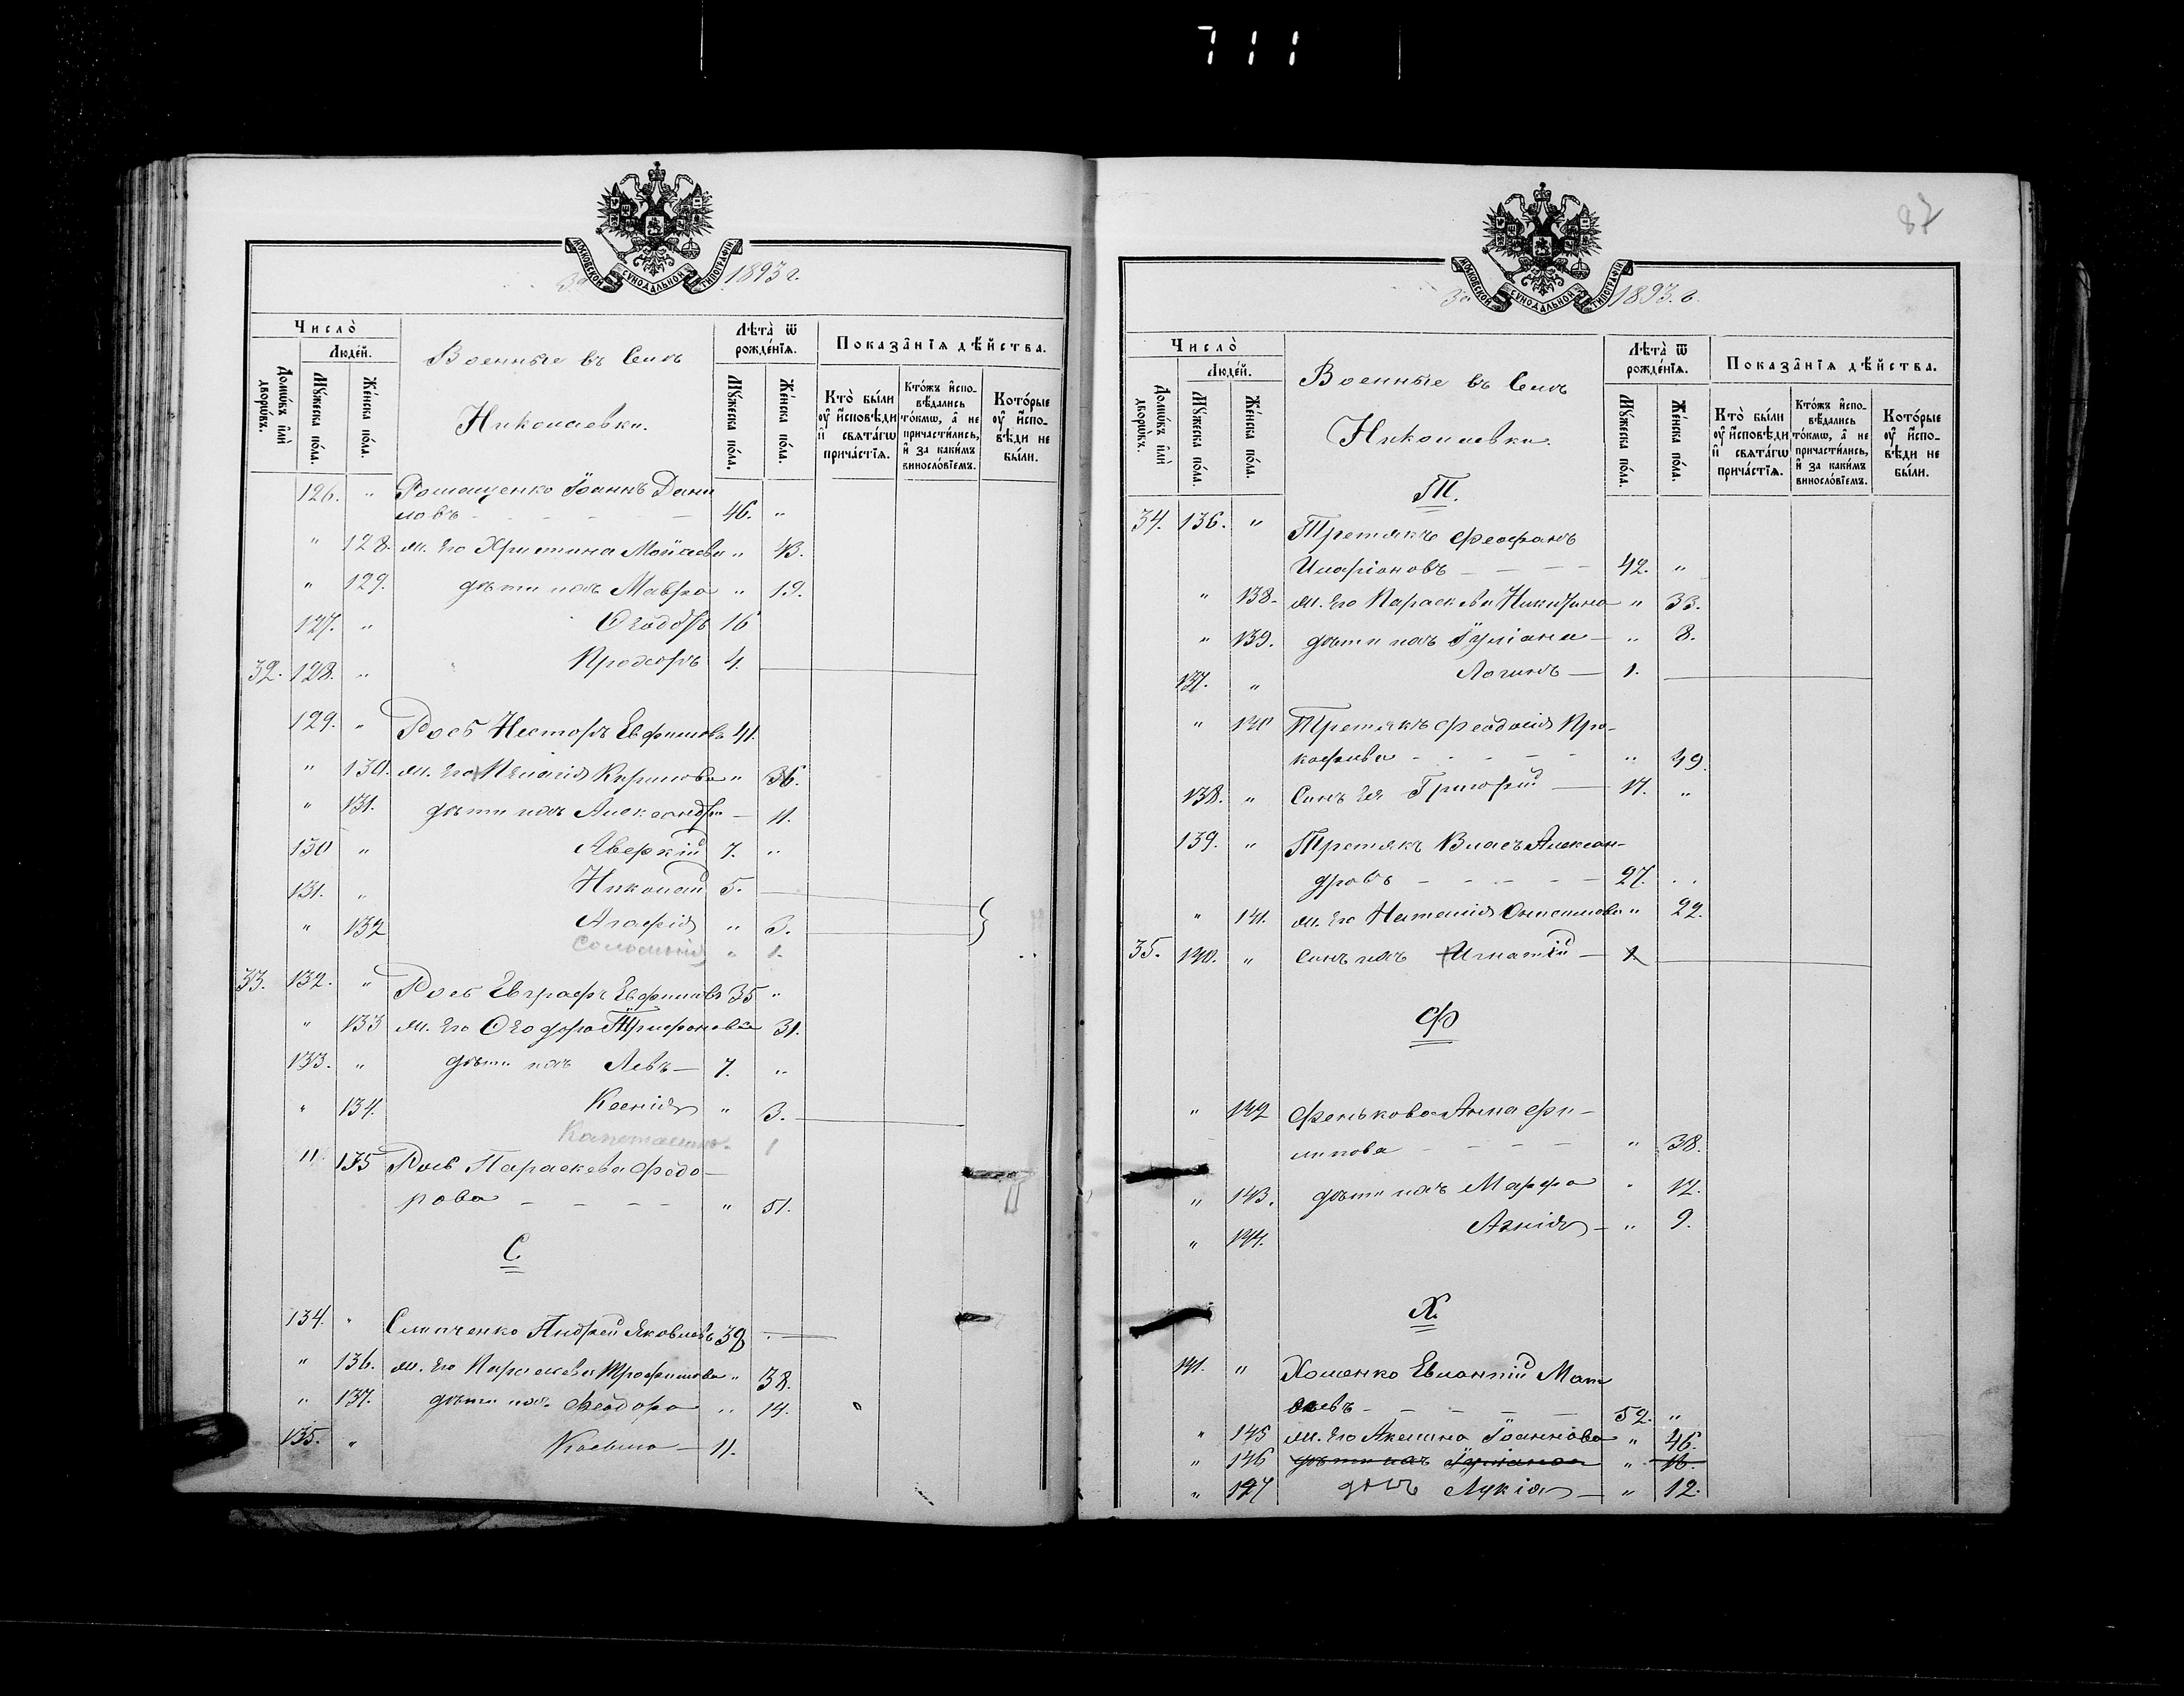 711
МОСКОВСКОЙ СУНОДАЛЬНОЙ ТИПОГРАФІИ
За 1893 г.
Число̀
Людéй.
Домѡ́въ и҆лѝ дворѡ́въ.
Мꙋ́жеска по́ла.
Же́нска по́ла.
Военные въ Селѣ
Николаевки.
Лѣта̀ ѿ рожде́нїѧ.
Мꙋ́жеска по́ла.
Же́нска по́ла.
Показа̂нїѧ дѣ́йства.
Кто̀ бы́ли ᲂу҆ и҆сповѣди и҆ свѧта́гѡ прича́стїѧ.
Кто́жъ и҆спо-вѣдались то́кмѡ, а҆ не причасти́лись, и҆ за каки́мъ винослóвїемъ.
Кото́рые ᲂу҆ и҆спо-вѣди не бы́ли.
126. " Ромащенко Іоаннъ Дани
ловъ - - - - - 46. "
" 128. ж. Его Христина Моѵсеева " 43.
" 129. дѣти ихъ Мавра " 19.
127. " Ѳеодоръ 16
32. 128. " Прохоръ 4.
129. " Роевъ Несторъ Евфимовъ 41.
" 130. ж. Его Пелагія Кирилова " 36.
" 131. дѣти ихъ Александра — 11.
130 " Аверкій 7. "
131. " Николай 5.
" 132 Агафія " 3.
Соломонія " 1.
33. 132. " Роевъ Евграфъ Евфимовъ 35 "
" 133 ж. Его Ѳеодора Трифоновна 31.
133. " дѣти ихъ Левъ — 7. "
" 134. Ксенія " 3.
Капетолина. 1
" 135 Роев Параскева Федо-
рова - - - - " 51.
С.
134. " Слипченко Андрей Яковлевъ 39
" 136. ж. Его Параскева Трофимова " 38.
" 137. дѣти ихъ Ѳеодора " 14.
135. " Косьма — 11.
87
МОСКОВСКОЙ СУНОДАЛЬНОЙ ТИПОГРАФІИ
За 1893. г.
Число̀
Людéй.
Домѡ́въ и҆лѝ дворѡ́въ.
Мꙋ́жеска по́ла.
Же́нска по́ла.
Военные въ Селѣ
Николаевки.
Лѣта̀ ѿ рожде́нїѧ.
Мꙋ́жеска по́ла.
Же́нска по́ла.
Показа̂нїѧ дѣ́йства.
Кто̀ бы́ли ᲂу҆ и҆сповѣди и҆ свѧта́гѡ прича́стїѧ.
Кто́жъ и҆спо-вѣдались то́кмѡ, а҆ не причасти́лись, и҆ за каки́мъ винослóвїемъ.
Кото́рые ᲂу҆ и҆спо-вѣди не бы́ли.
Т.
34. 136. " Третьякъ Феофанъ
Иларіоновъ - - - - 42. "
" 138. ж. Его Параскева Никифорова " 33.
" 139. дѣти ихъ Іуліана — " 8.
137. " Логинъ — 1.
" 140 Третьякъ Феодосія Про-
кофьева - - - - - " 49.
138. " Сынъ Ея Григорій — 17. "
139. " Третьякъ Власъ Алексан-
дровъ - - - - - 27. "
" 141. ж. Его Наталія " 22.
35. 140. " Сынъ ихъ Игнатій — 1.
Ф
" 142 Фенькова Анна Фи-
липова - - - - " 38.
" 143. дѣти ихъ Марфа " 17.
" 144. Агнія — " 9.
Х.
141. " Хоменко Евлампій Мат
ѳеевъ - - - - - 52. "
" 145 ж. Его Акелина Іоаннова " 46.
" 146 дѣти ихъ Іуліанія " 16.
" 147 дочь Лукія — " 12.